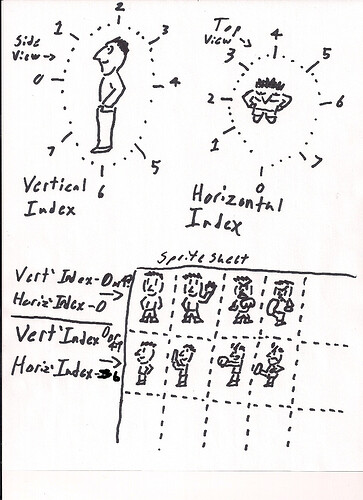 2
1
3
Side
View→
0
4
7
5
6
Vertical
Index
Top
View
4
3
5
2
6
1
7
0
Horizontal
Index
Sprite Sheet
Vert' Index-0
Horiz' Index-0
Vert' Index 0
Horiz' Index-6